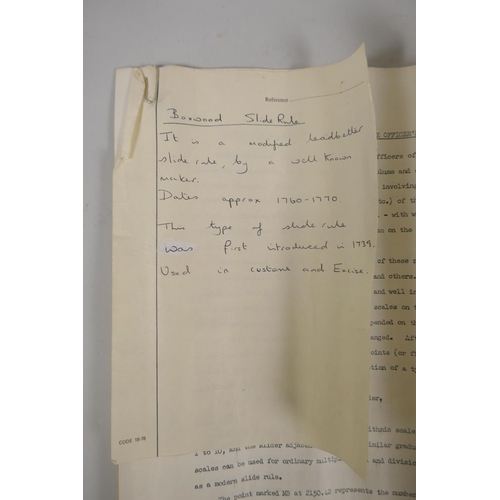 Reference
Boxwood Slide Rule
It is a modified leadbetter
slide rule, by a well known
maker.
Dates approx 1760-1770.
This type of slide rule
was first introduced in 1739.
Used in customs and Excise.
CODE 18-78
E OFFICER'S
fficers of
involving
tc.) of t
- with w
on on the
of these r
and others.
and well in
scales on t
epended on th
anged. Aft
oints (or f
ction of a ty
ier.
ithmic scale
1 to 10, and the slider adjace milar gradu
scales can be used for ordinary multip and divisi
as a modern slide rule.
The point marked MB at 2150.42 represents the number